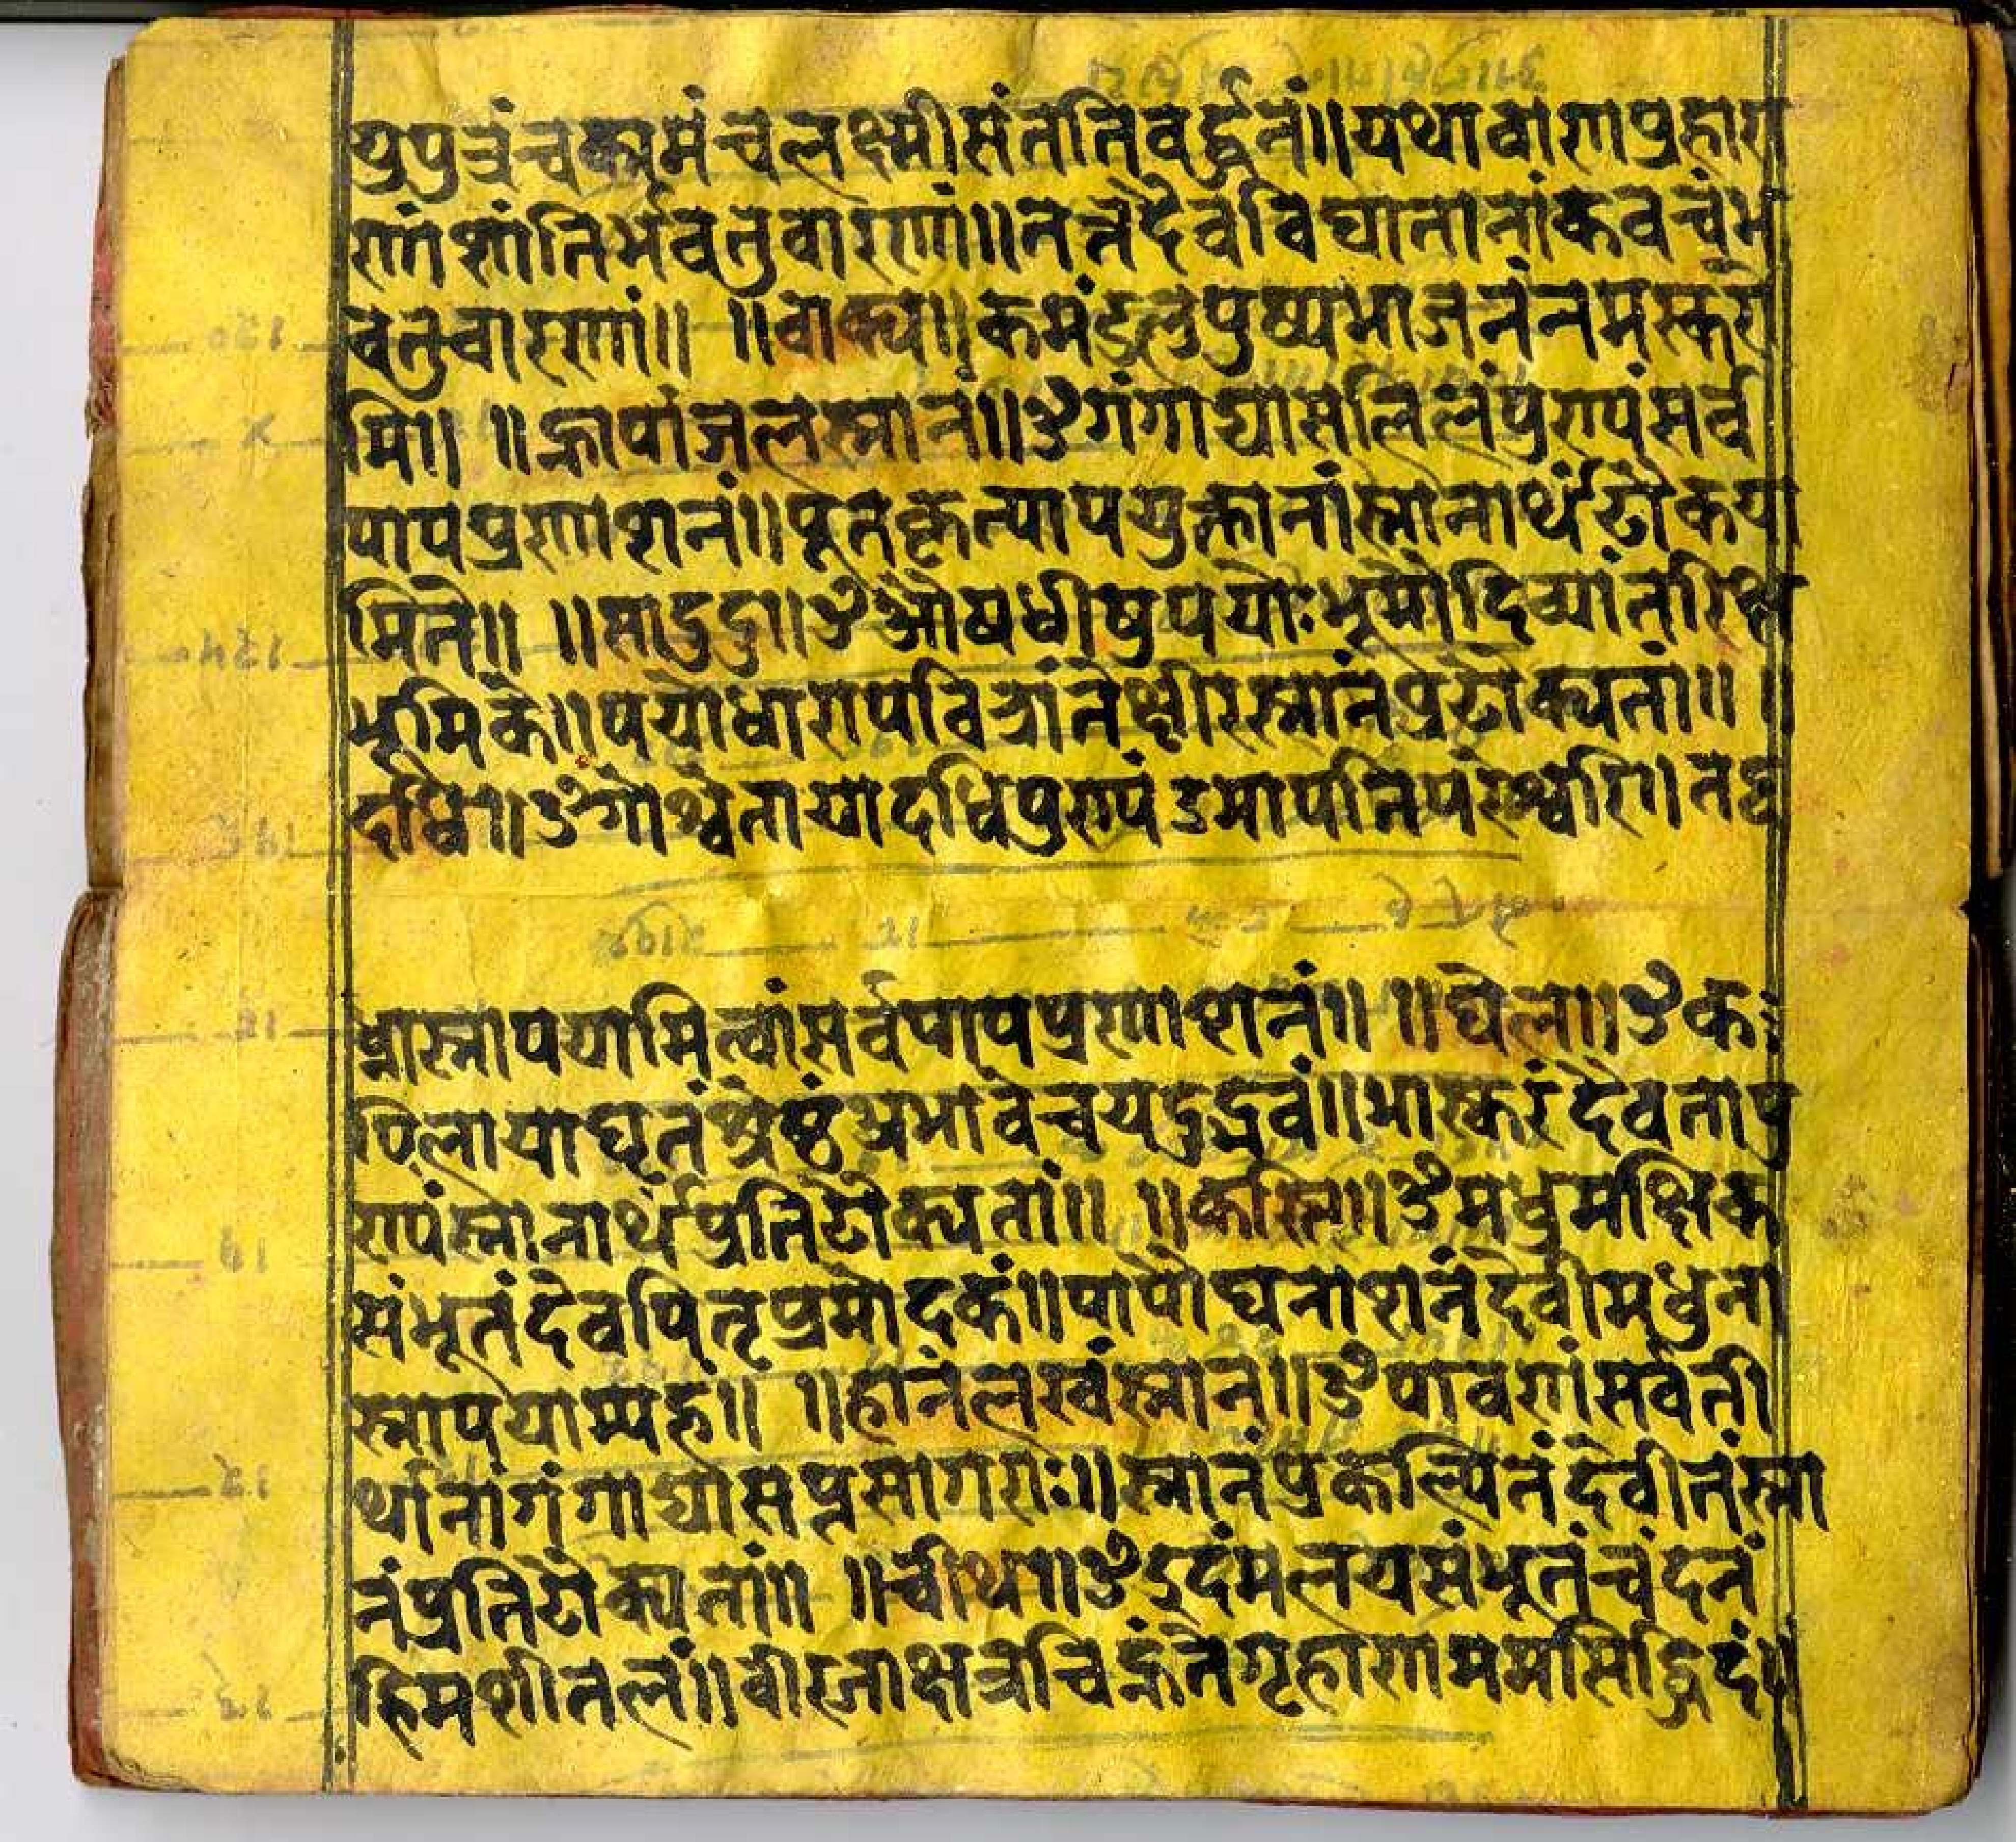 युपुत्रंचकामंचलक्ष्मीसंततिवर्द्धनं॥यथावाणप्रहारा
णांशांतिर्भवतुवारणं॥तत्रदैवविघातानांकवचंभ
वतुवारणं॥ ॥वाक्य॥कमंडलुपुष्पभाजनंनमस्करो
मि॥ ॥ह्नापांजलस्नान॥ॐगंगाद्यासलिलंपुण्यंसर्व
पापप्रणाशनं॥पूतकृत्यापयुक्तानांस्नानार्थंढौकया
मिते॥ ॥सादुदु॥ॐऔषधीषुपयोःभूमौदिव्यांतरिक्ष
भूमिके॥पयोधारापवित्रांतेक्षीरस्नानंप्रढौक्यतां॥ ॥
दधि॥ॐगोश्वेतायादधिपुण्यंउमापतिपरेश्वरि॥तद्ध
ध्नास्नापयामित्वांसर्वपापप्रणाशनं॥ ॥घेल॥ॐक
पिलायाघृतंश्रेष्ठंअभावेचयदुद्भवं॥भास्करंदेवतापु
ण्यंस्नानार्थंप्रतिढौक्यतां॥ ॥कस्ति॥ॐमधुमक्षिक
संभूतंदेवपितृप्रमोदकं॥पापौघनाशनंदेवीमधुना
स्नापयाम्यहं॥ ॥हानंलखंस्नान॥ॐपावणांसर्वती
र्थानांगंगाद्यासप्तसागराः॥स्नानंप्रकल्पितंदेवीतंस्ना
नंप्रतिढौक्यतां॥ ॥चीथ॥ॐइदंमलयसंभूतंचंदनं
हिमशीतलं॥वीरनाक्षत्रचिह्नंतेगृहाणममसिद्धिदं॥